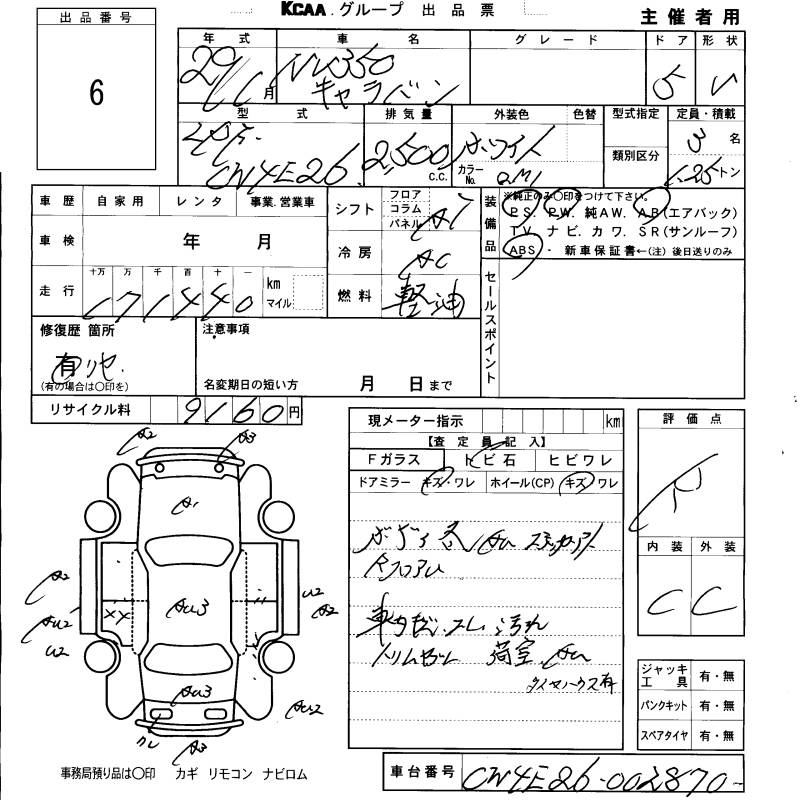 KCAA.グループ 出品票
主催者用
出品番号
6
年式 車名 グレード ドア 形状
29/ 月 NV350 5 V
キャラバン
型式 排気量 外装色 色替 型式指定 定員・積載
CW4E26 2,500 c.c. ホワイト カラーNo. QM1 類別区分 3名
1.25トン
車歴 自家用 レンタ 事業.営業車
車検 年 月
走行 十万 万 千 百 十 一 km マイル
171440
シフト フロア コラム パネル AT
冷房 AC
燃料 軽油
装備品 ※純正のみ〇印をつけて下さい。
P.S. P.W. 純A.W. A.B(エアバック)
T.V. ナビ.カワ.S.R(サンルーフ)
ABS・ 新車保証書←(注)後日送りのみ
セールスポイント
修復歴 箇所
有リヤ.
(有の場合は〇印を)
注意事項
名変期日の短い方 月 日まで
リサイクル料 9160円
現メーター指示 km
【査定員記入】
Fガラス トビ石 ヒビワレ
ドアミラー キズ・ワレ ホイール(CP) キズ・ワレ
車内
汚れ
荷室
有
評価点
R
内装 外装
C C
A2 A3
A1
A2 U2
A2
XX AU3
AU2
U2
AU3
AU2
A3
ジャッキ工具 有・無
パンクキット 有・無
スペアタイヤ 有・無
事務局預り品は〇印 カギ リモコン ナビロム
車台番号 CW4E26-002870-